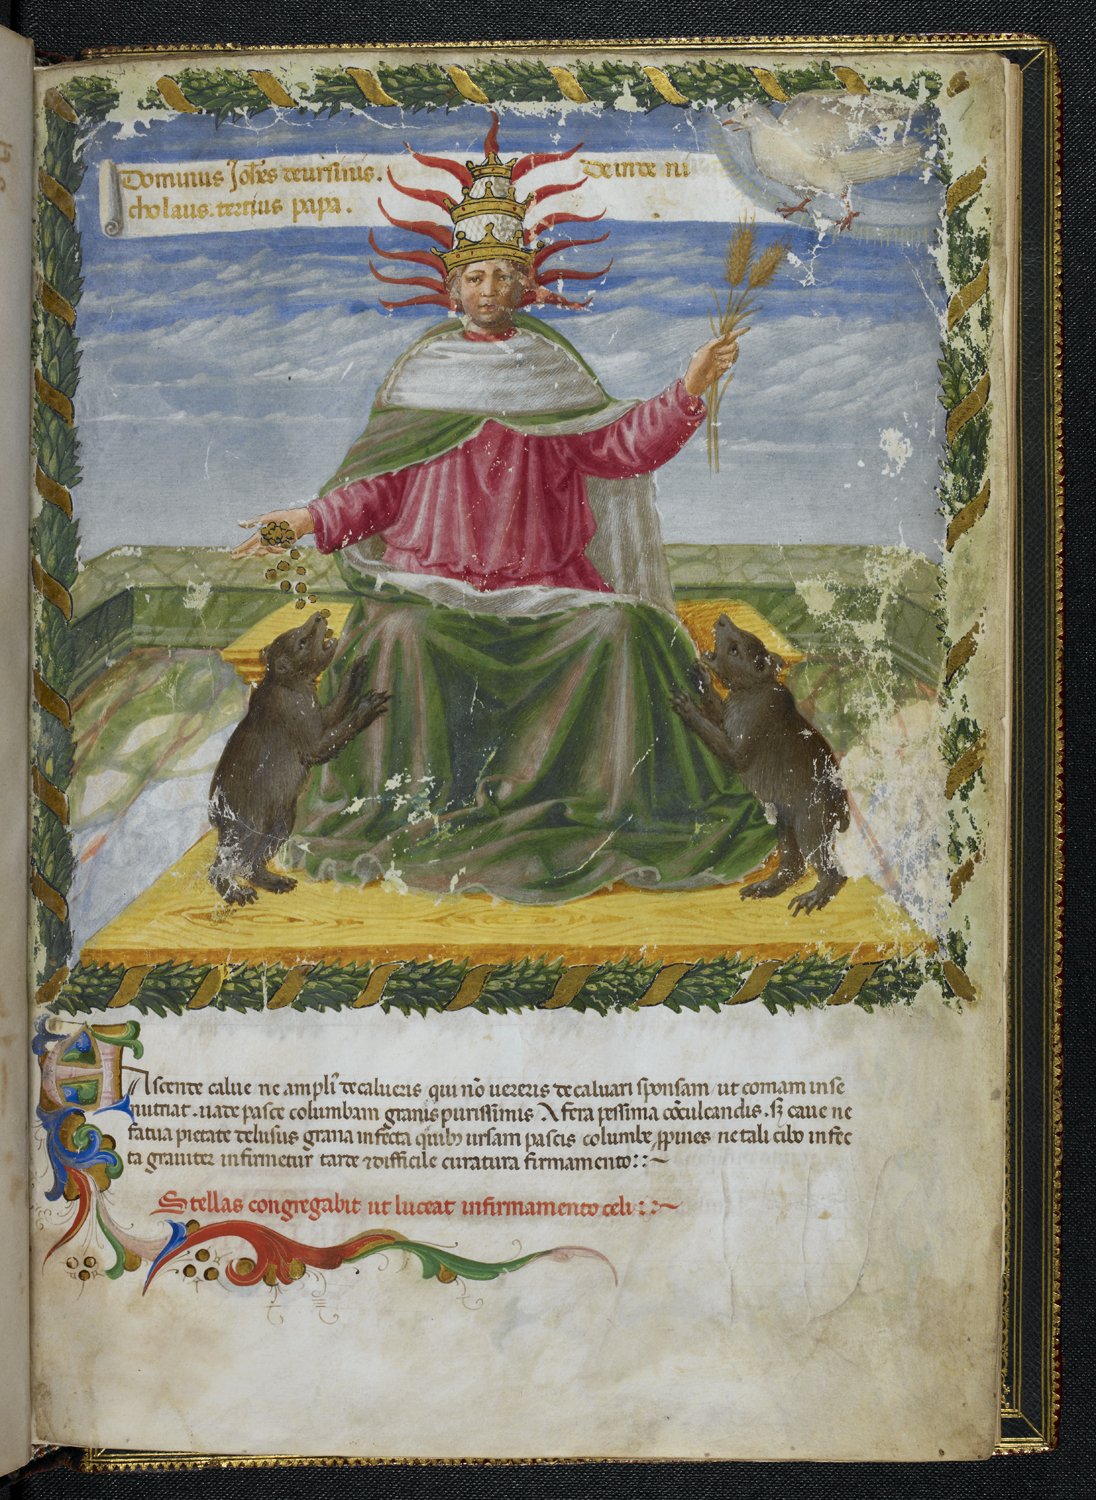 Dominus Joh̅es de ursinis. Deinde ni
cholaus. tertius papa.
Ascente calue ne ampli̅ decalueris qui no̅ uereris decaluari sponsam ut comam inse
nutriat. uade pasce columbam granis purissimis A fera pessima co̅culcandis. sꝫ caue ne
fatua pietate delusus grana infecta quibꝫ ursam pascis columbe ꝓpines ne tali cibo infec
ta grauiter infirmetur tarde ⁊ difficile curatura firmamento::~
Stellas congregabit ut luceat infirmamento celi::~